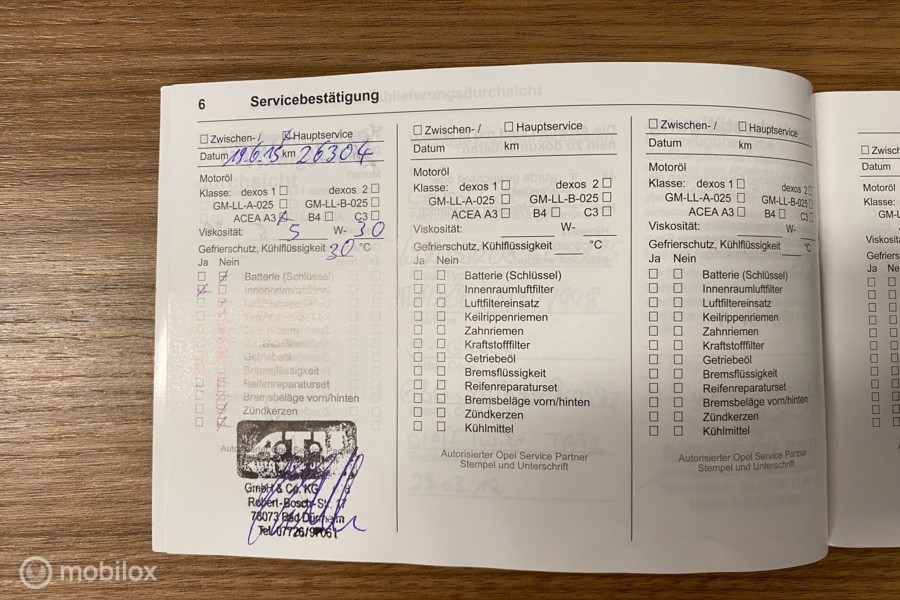 6 Servicebestätigung
Zwischen-/ Hauptservice
Datum 19.6.15 km 26304
Motoröl
Klasse: dexos 1 dexos 2
GM-LL-A-025 GM-LL-B-025
ACEA A3 B4 C3
Viskosität: 5 W- 30
Gefrierschutz, Kühlflüssigkeit 30 °C
Ja Nein
Batterie (Schlüssel)
Innenraumluftfilter
Getriebeöl
Bremsflüssigkeit
Reifenreparaturset
Bremsbeläge vorn/hinten
Zündkerzen
ATU
GmbH & Co. KG
Robert-Bosch-St. 17
78073 Bad Dürrheim
Tel. 07726/97061
Zwischen-/ Hauptservice
Datum km
Motoröl
Klasse: dexos 1 dexos 2
GM-LL-A-025 GM-LL-B-025
ACEA A3 B4 C3
Viskosität: W-
Gefrierschutz, Kühlflüssigkeit °C
Ja Nein
Batterie (Schlüssel)
Innenraumluftfilter
Luftfiltereinsatz
Keilrippenriemen
Zahnriemen
Kraftstofffilter
Getriebeöl
Bremsflüssigkeit
Reifenreparaturset
Bremsbeläge vorn/hinten
Zündkerzen
Kühlmittel
Autorisierter Opel Service Partner
Stempel und Unterschrift
Zwischen-/ Hauptservice
Datum km
Motoröl
Klasse: dexos 1 dexos 2
GM-LL-A-025 GM-LL-B-025
ACEA A3 B4 C3
Viskosität: W-
Gefrierschutz, Kühlflüssigkeit °C
Ja Nein
Batterie (Schlüssel)
Innenraumluftfilter
Luftfiltereinsatz
Keilrippenriemen
Zahnriemen
Kraftstofffilter
Getriebeöl
Bremsflüssigkeit
Reifenreparaturset
Bremsbeläge vorn/hinten
Zündkerzen
Kühlmittel
Autorisierter Opel Service Partner
Stempel und Unterschrift
Datum
Motoröl
Klasse:
Ja Nein
mobilox